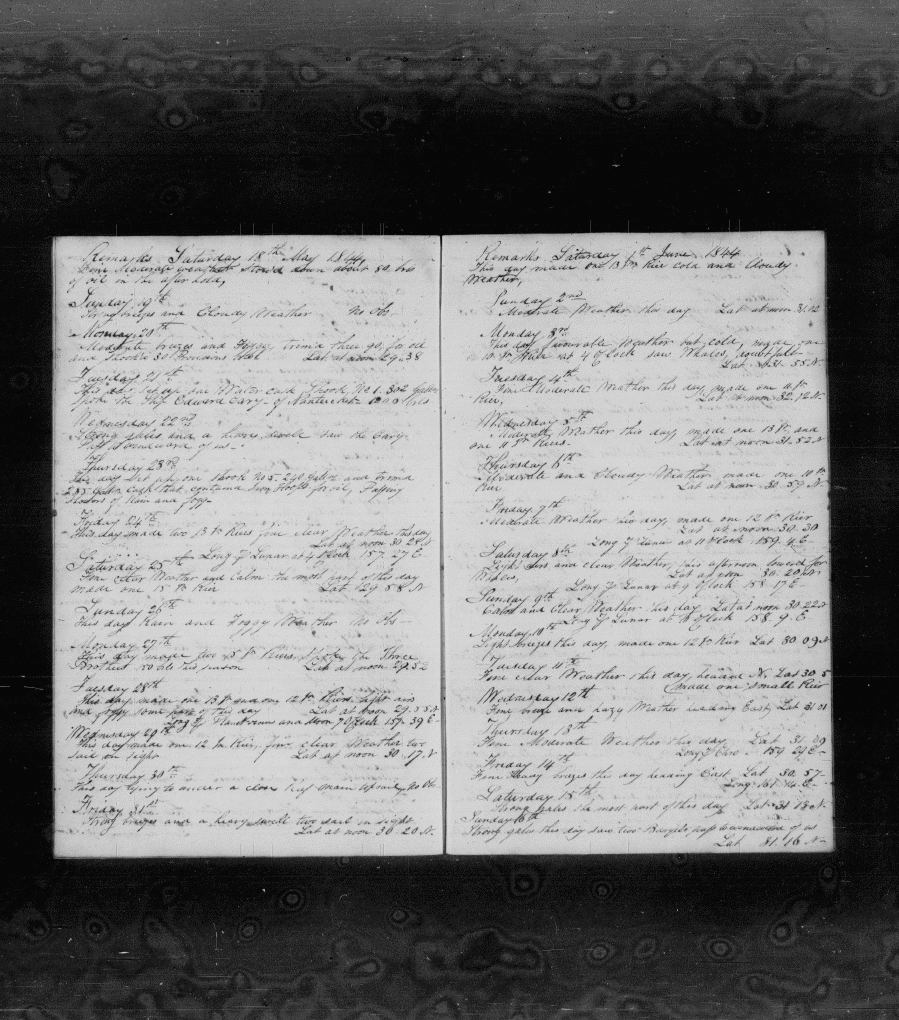 Remarks Saturday 18th May 1844
Some Moderate weather Stowed down about 80 bbs
of oil in the after hold,
Sunday 19th
Strong breezes and Cloudy Weather No Obs
Monday 20th
Moderate breezes and Foggy, trim'd three for oil
and Shook 30 Lat at noon 29..38
Tuesday 21st
This day taken one Water cask Shook No 1. 302 Gallons
Spoke the Ship Edward Cary of Nantucket
Wednesday 22nd
Strong gales and a heavy swell saw the Cary
of us
Thursday 23rd
This day set up one Shook No 5. and trim'd
Cask that contains Iron Hoops for oil, Passing
Showers of Rain and foggy
Friday 24th
This day made two 13 ft Kiers fine clear Weather this day
Lat at noon 30 28 N
Long By Lunar at 4 OClock 157. 27 E
Saturday 25th
Fine clear Weather and Calm the most part of this day
made one 13 ft Kier Lat 29 58 N
Sunday 26th
This day Rain and Foggy Weather No Obs
Monday 27th
This day made two 13 ft Kiers, Spoke the Three
Brothers 50 bbs this season Lat at noon 29.52
Tuesday 28th
This day made one 13 ft and one 12 ft Kier, light airs
and foggy some part of this day Lat at noon 29.55 N
Long By and Moon 7 OClock 157.39 E
Wednesday 29th
This day made one 12 ft Kier, fine clear Weather two
Sail in Sight Lat at noon 30.17. N
Thursday 30th
This day trying to under a close Reef Main no Ob
Friday 31st
Strong breezes and a heavy swell two sail in sight
Lat at noon 30 20 N.
Remarks Saturday 1st June 1844
This day made one 13 ft Kier cold and Cloudy
Weather,
Sunday 2nd
Moderate Weather this day Lat at noon 31.12
Monday 3rd
This day favourable Weather but cold, made one
10 ft at 4 OClock saw Whales, doubtful
Lat 31. 55 N
Tuesday 4th
Fine Moderate Weather this day made one 11 ft
Kier, Lat at noon 32.12 N
Wednesday 5th
Moderate Weather this day made one 13 ft and
one 11 ft Kiers. Lat at noon 31.52 N
Thursday 6th
Moderate and Cloudy Weather made one 11 ft
Kier Lat at noon 30. 59 N
Friday 7th
Moderate Weather this day, made one 12 ft Kier
Lat at noon 30 30
Long By Lunar at OClock 159. 4 E
Saturday 8th
Light Airs and clear Weather, this afternoon lowered for
Lat at noon 30. 20 N
Long By Lunar at 9 OClock 158 17 E
Sunday 9th
Calm and Clear Weather this day Lat at noon 30 22 N
Long By Lunar at OClock 158. 9. E
Monday 10th
Light breezes this day, made one 12 ft Kier Lat 30 09 N
Tuesday 11th
Fine clear Weather this day, heading N. Lat 30 5
made one small Kier
Wednesday 12th
Fine breeze and hazy Weather heading East, Lat 31 01
Thursday 13th
Fine Moderate Weather this day Lat 31 09
Long By 159 29 E
Friday 14th
Fine breezes this day heading East Lat 30. 57
Long 161. 4. E.
Saturday 15th
Strong gales the most part of this day Lat 31 13 N
Sunday 16th
Strong gales this day saw two pass to of us
Lat 31. 16 N